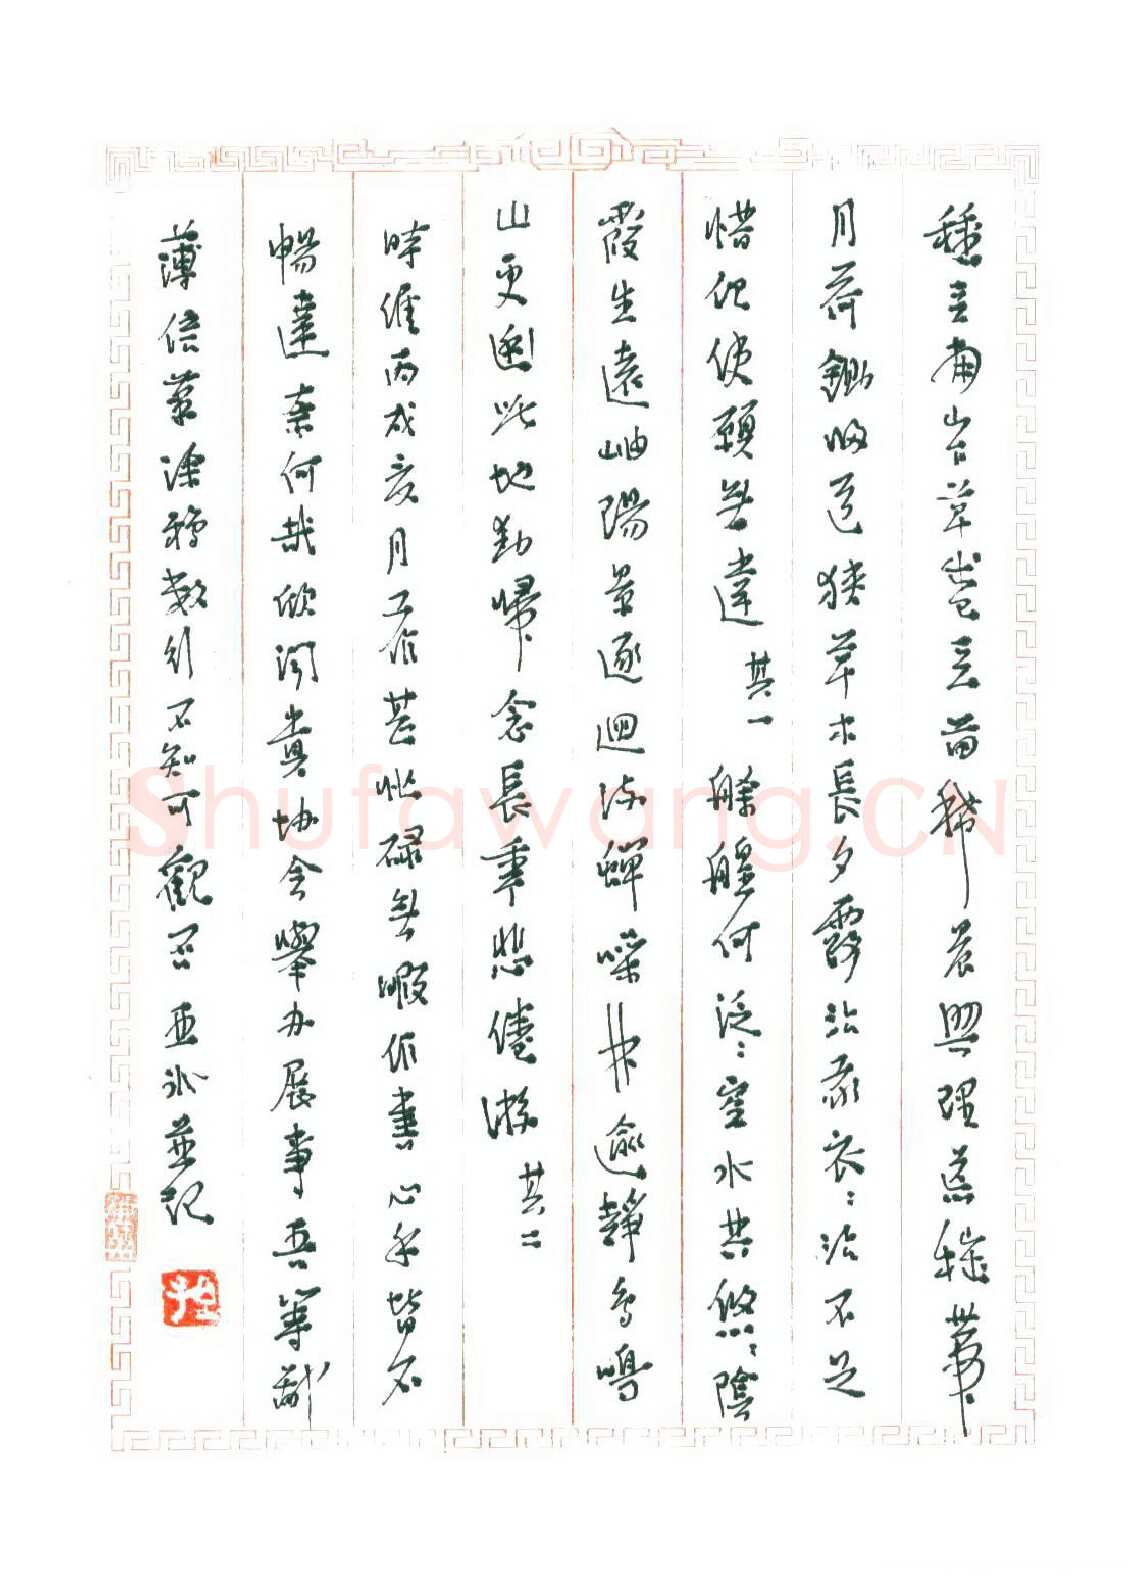 種豆南山下草盛豆苗稀晨興理荒穢帶
月荷鋤歸道狹草木長夕露沾我衣:沾不足
惜但使願無違 其一 艅艎何泛:空水共悠:陰
霞生遠岫陽景逐迴流蟬噪林逾靜鳥鳴
山更幽此地動歸念長年悲倦游 其二
時維丙戌亥月工作甚忙碌無暇作書心手皆不
暢達奈何哉欣聞貴协会舉办展事吾等
薄信筆塗鴉數行不知可觀否 亞冰並記
Shufawang.CN